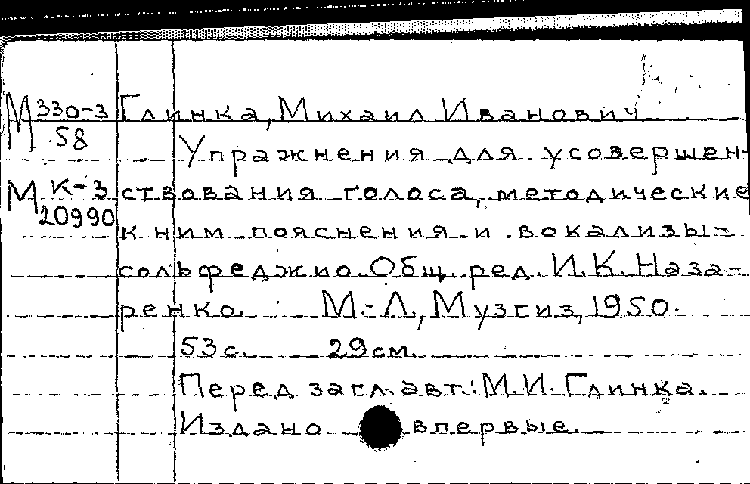 М 330-3 Глинка, Михаил Иванович
58
Упражнения для усовершен-
М К-3 ствования голоса, методические
20990 к ним пояснения и вокализы-
сольфеджио. Общ. ред. И.К. Наза-
ренко. М.-Л., Музгиз, 1950.
53 с. 29 см.
Перед загл. авт.: М.И. Глинка.
Издано впервые.